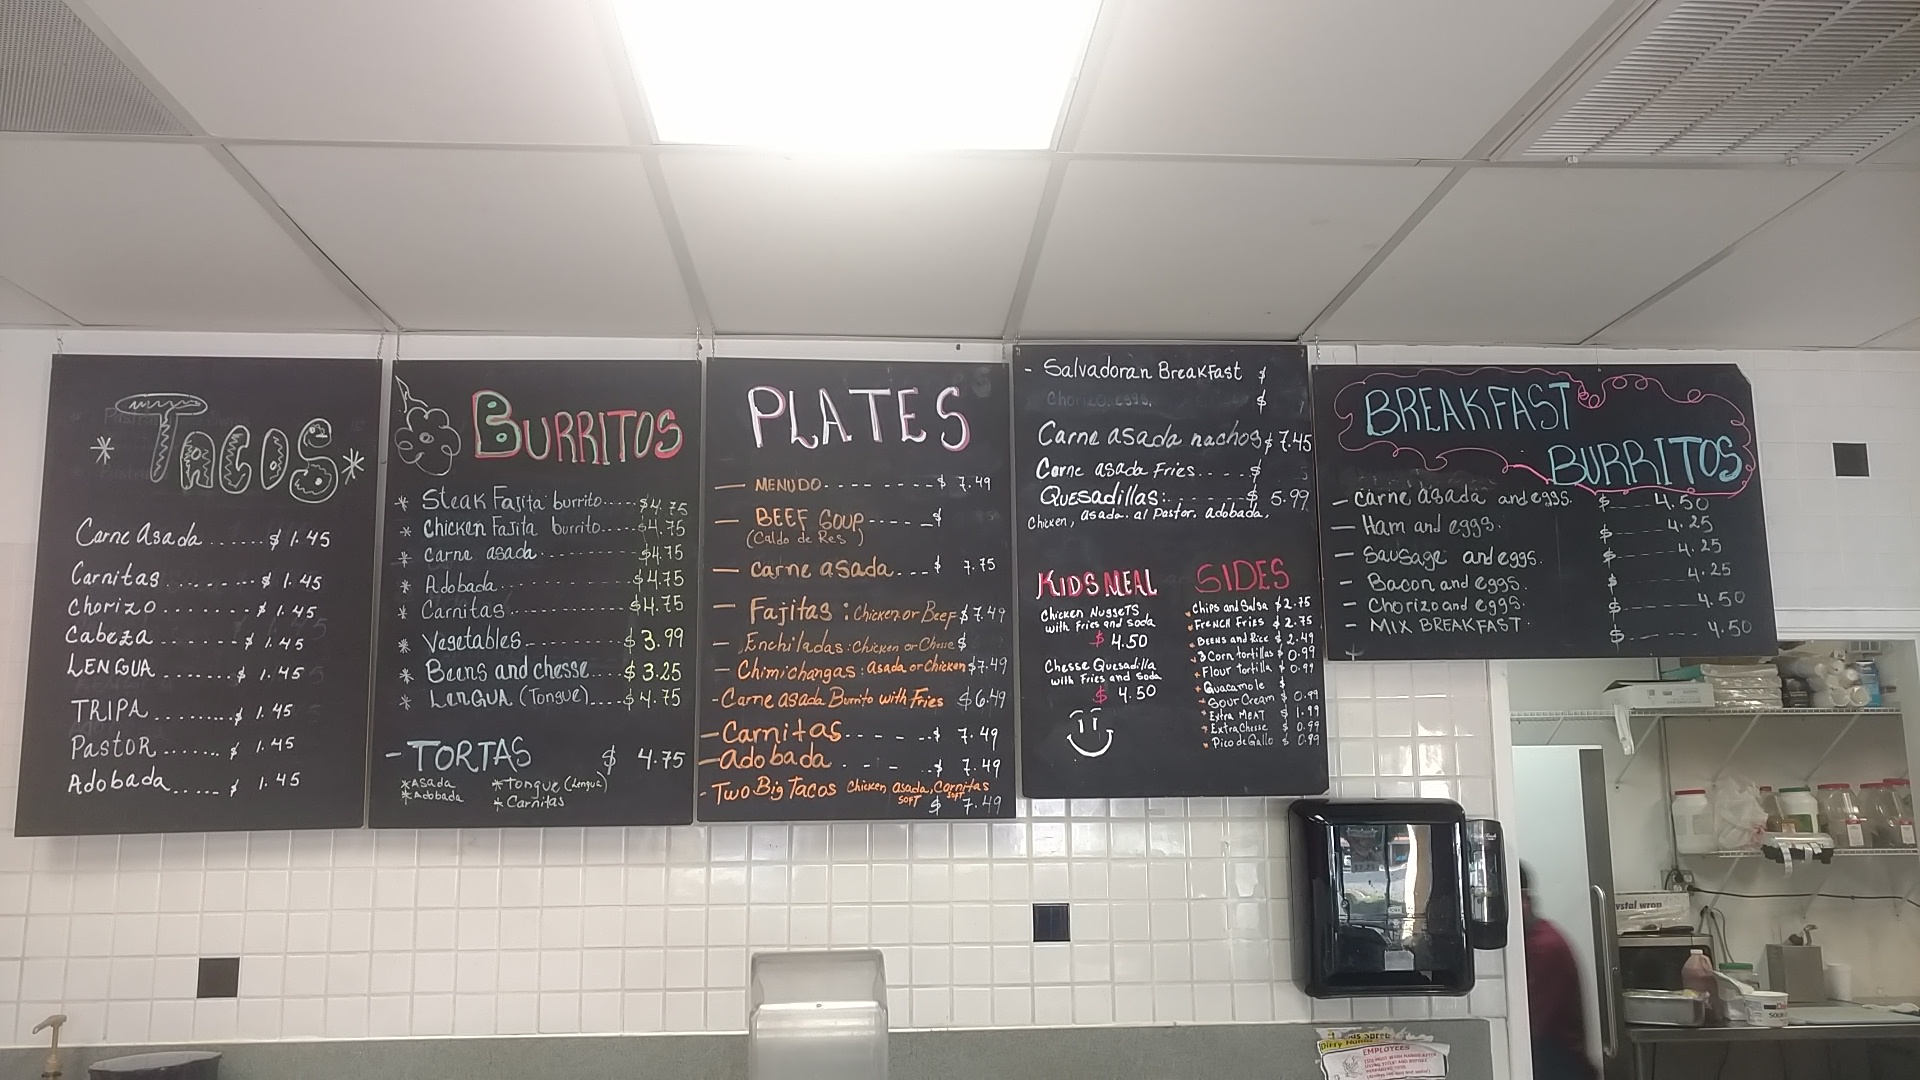 TACOS
Carne Asada ...... $ 1.45
Carnitas ........ $ 1.45
Chorizo ....... $ 1.45
Cabeza ....... $ 1.45
LENGUA ....... $ 1.45
TRIPA ......... $ 1.45
PASTOR ....... $ 1.45
Adobada ..... $ 1.45
BURRITOS
* Steak Fajita burrito ..... $4.75
* Chicken Fajita burrito .... $4.75
* Carne asada .......... $4.75
* Adobada .......... $4.75
* Carnitas .......... $4.75
* Vegetables ......... $ 3.99
* Beens and chesse .... $ 3.25
* LENGUA (Tongue) .... $ 4.75
- TORTAS $ 4.75
* ASada * Tongue (Lengua)
* Adobada * Carnitas
PLATES
— MENUDO - - - - - - - - - $ 7.49
— BEEF SOUP - - - - - $
(Caldo de Res)
— Carne asada - - - $ 7.75
— Fajitas : Chicken or Beef $ 7.49
— Enchiladas : Chicken or Chesse $
— Chimichangas : Asada or Chicken $7.49
- Carne asada Burrito with Fries $ 6.49
— Carnitas - - - - - $ 7.49
— Adobada - - - - $ 7.49
- Two Big Tacos Chicken asada, Carnitas
SOFT SOFT $ 7.49
- Salvadoran BreakFast $
Chorizo eggs. $
Carne asada nachos $ 7.45
Carne asada Fries .... $
Quesadillas: ...... $ 5.99
Chicken, asada. al Pastor. Adobada.
KIDS MEAL
Chicken NuggeTS,
with Fries and Soda
$ 4.50
Chesse Quesadilla
with Fries and Soda
$ 4.50
SIDES
Chips and Salsa $ 2.75
FRENCH FRIES $ 2.75
BEENS and Rice $ 2.49
3 Corn tortillas $ 0.99
Flour tortilla $ 0.99
Guacamole $
Sour Cream $ 0.99
Extra MEAT $ 1.99
Extra Chesse $ 0.99
Pico de Gallo $ 0.99
BREAKFAST
BURRITOS
— carne asada and eggs. $ 4.50
— Ham and eggs. $ 4.25
— Sausage and eggs. $ 4.25
— Bacon and eggs. $ 4.25
— Chorizo and eggs. $ 4.50
— MIX BREAKFAST. $ 4.50
EMPLOYEES